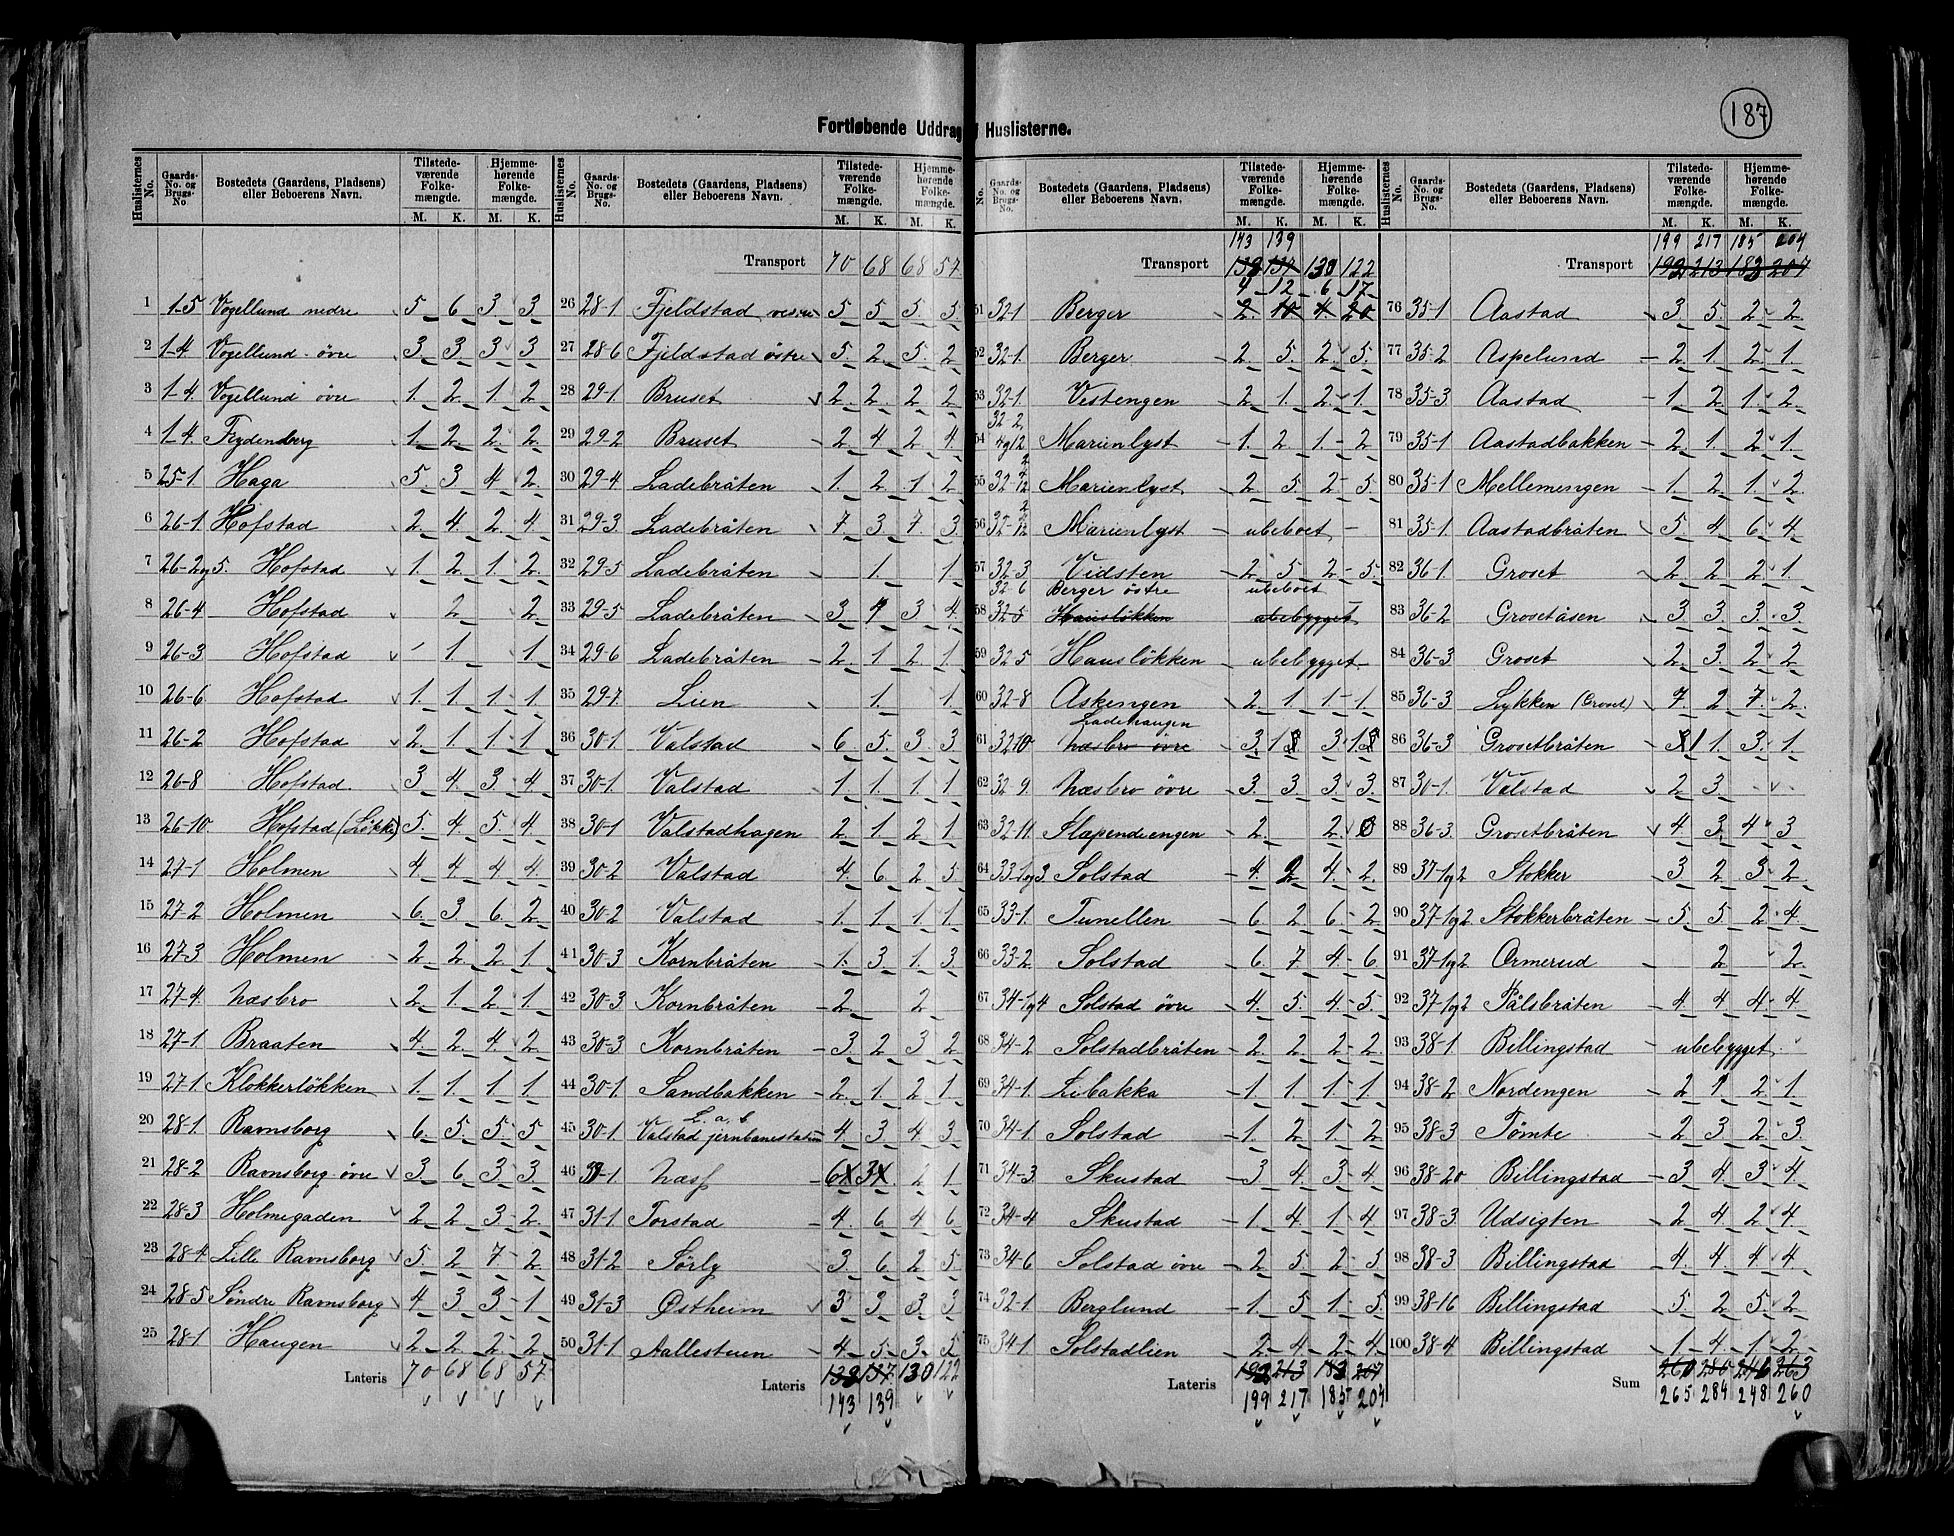 187
Fortløbende Uddrag Huslisterne.
Huslisternes No. Gaards-No. og Brugs-No Bostedets (Gaardens, Pladsens) eller Beboerens Navn. Tilstedeværende Folkemængde. M. K. Hjemmehørende Folkemængde. M. K.
1 1-5 Vogellund nedre 5 6 3 3
2 1-4 Vogellund øvre 3 3 3 3
3 1-4. Vogellund øvre 1. 2 1. 2
4 1-4. Frydensberg 1. 2. 2. 2
5 25-1 Haga 5. 3 4 2
6 26-1 Hofstad 2 4. 2 4.
7 26-2og5. Hofstad 1. 2. 1. 2
8 26-4 Hofstad 2 2.
9 26-3 Hofstad - 1. 1.
10 26-6 Hofstad 1. 1. 1. 1
11 26-2 Hofstad 2. 1. 1. 1
12 26-8 Hofstad. 3 4. 3 4.
13 26-10. Hofstad (Løkke) 5. 4. 5. 4.
14 27-1 Holmen 4 4. 4. 4.
15 27-2 Holmen 6. 3 6. 2
16 27-3 Holmen 2 2. 2 1.
17 27-4. Næsbro 2 1. 2 1.
18 27-1 Braaten 4. 2. 4. 2
19 27-1 Klokkerløkken 1. 1. 1. 1
20 28-1 Ravnsborg 6. 5. 5. 5
21 28-2 Ravnsborg øvre 3 6 3 3
22 28-3 Holmegaden 2 2 3 2.
23 28-4 Lille Ravnsborg 5. 2 7 2
24 28-5 Søndre Ravnsborg 4 3 3 1
25 28-1 Haugen 2 2 2 2
Lateris 70 68 68 57
Huslisternes No. Gaards-No. og Brugs-No. Bostedets (Gaardens, Pladsens) eller Beboerens Navn. Tilstedeværende Folkemængde. M. K. Hjemmehørende Folkemængde. M. K.
Transport 70 68 68 57
26 28-1 Fjeldstad 5 5 5 5
27 28-6 Fjeldstad østre 5. 2 5. 2
28 29-1 Bruset 2 2. 2 2
29 29-2 Bruset 2 4 2 4.
30 29-4 Ladebråten 1. 2 1 2
31 29-3 Ladebråten 7 3 7 3
32 29-5 Ladebråten 1. 1
33 29-5 Ladebråten 3 4 3 4.
34 29-6 Ladebråten 2 1 2 1
35 29-7. Lien 1. 1
36 30-1. Valstad 6 5 3 3
37 30-1 Valstad 1 1 1 1
38 30-1 Valstadhagen 2 1 2 1
39 30-2 Valstad 4 6 2 5
40 30-2 Valstad 1. 1 1 1
41 30-3 Kornbråten 1. 3 1. 3
42 30-3 Kornbråten 2 2
43 30-3 Kornbråten 3 2 3 2
44 30-1. Sandbakken 2 1 2 1
L. a. b
45 30-1 Valstad jernbanestation 4 3 4 3
46 Næss 2 1
47 31-1 Torstad 4. 6 4 6
48 31-2 Sørly 3 6 2 5
49 31-3 Østheim 3 3 3 3
50 31-1 Aallestuen 4 5 3 5
Lateris 138 137 130 122
143 139
No. Gaards-No. og Brugs-No. Bostedets (Gaardens, Pladsens) eller Beboerens Navn. Tilstedeværende Folkemængde. M. K. Hjemmehørende Folkemængde. M. K.
143 139
Transport 138 137 130 122
4 12 6 17
51 32-1 Berger 2. 10 4. 20
52 32-1. Berger 2. 5. 2 5.
53 32-1. Vestengen 2 1 2 1.
54 32-2 og 12 Marienlyst 1. 2 1 2
55 Marienlyst 2 5. 2 5
56 Marienlyst - ubeboet -
57 32-3 Vidsten 2 5 2 5.
32-6 Berger østre ubeboet
58 32-5 Hausløkken ubebygget
59 32-5 Hausløkken - ubebygget -
60 32-8 Askengen 2. 1 1 1.
Ladehaugen
61 32-10 Næsbro øvre
62 32-9. Næsbro øvre 3. 3 3 3
63 32-11. Slæpendengen 2. 2 0
64 33-1og3. Solstad 4. 2 4. 2
65 33-1. Tunellen 6. 2 6 2
66 33-2 Solstad 6. 7 4 6
67 34-1og4 Solstad øvre 4. 5 4 5
68 34-2 Solstadbråten 2. 2 2 2
69 34-1. Libakka 1 1 1 1
70 34-1. Solstad 1. 2 1 2
71 34-3. Skustad 3 4. 3 4.
72 34-4 Skustad 1 4. 1 4.
73 34-6 Solstad øvre 2 5 2 5
74 32-1 Berglund 1. 5 1 5.
75 34-1. Solstadlien 2 4 2 4.
Lateris 192 213 183 207
199 217 185 204
Huslisternes No. Gaards-No. og Brugs-No. Bostedets (Gaardens, Pladsens) eller Beboerens Navn. Tilstedeværende Folkemængde. M. K. Hjemmehørende Folkemængde. M. K.
199 217 185 204
Transport 192 213 183 207
76 35-1 Aastad 3 5 2 2
77 35-2 Aspelund 2 1. 2 1.
78 35-3 Aastad 1. 2 1 2
79 35-1 Aastadbakken 2 1. 2 1.
80 35-1 Mellemengen 1. 2 1 2.
81 35-1. Aastadbråten 5 4 6 4
82 36-1. Groset 2 2 2 1.
83 36-2 Grosetåsen 3 3. 3 3
84 36-3 Groset 2 3 2 2
85 36-3 Lykken (Groset) 7. 2 7 2.
86 36-3 Grosetbråten 1. 3. 1.
87 30-1. Valstad 2 3
88 36-3. Grosetbråten 4. 3 4 3
89 37-1og2 Stokker 3 2 3 2
90 37-1og2 Stokkerbråten 5 5 2 4.
91 37-1og2 Ormerud 2 2.
92 37-1og2 Pålsbråten 4. 4 4 4
93 38-1 Billingstad ubebygget.
94 38-2 Nordengen 2 1 2 1
95 38-3 Tømte 2 3 2 3.
96 38-20 Billingstad 3 4 3 4
97 38-3. Udsigten 2 4 2 4.
98 38-3 Billingstad 4. 4. 4. 4.
99 38-16 Billingstad 5. 2 5. 2
100 38-4 Billingstad 1 4. 1. 2
Sum 260 286 246 263
265 284 248 260